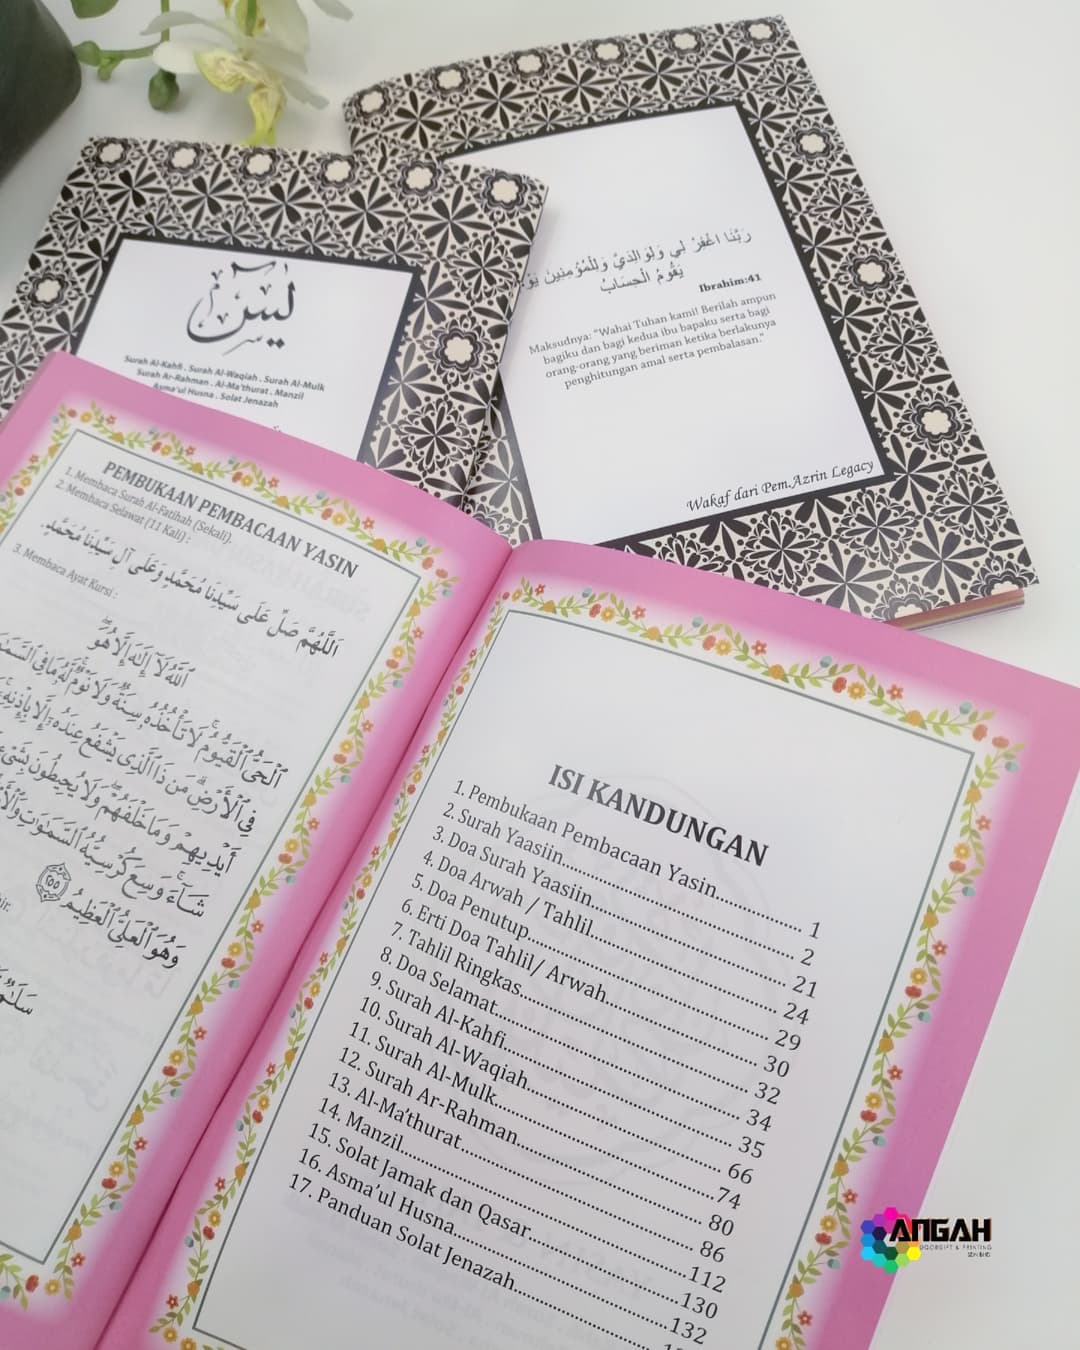 رَبَّنَا اغْفِرْ لِي وَلِوَالِدَيَّ وَلِلْمُؤْمِنِينَ
يَقُومُ الْحِسَابُ
Ibrahim:41
Maksudnya: "Wahai Tuhan kami! Berilah ampun
bagiku dan bagi kedua ibu bapaku serta bagi
orang-orang yang beriman ketika berlakunya
penghitungan amal serta pembalasan."
Wakaf dari Pem.Azrin Legacy
يٰسٓ
Surah Al-Kahfi . Surah Al-Waqiah . Surah Al-Mulk
Surah Ar-Rahman . Al-Ma'thurat . Manzil
Asma'ul Husna . Solat Jenazah
PEMBUKAAN PEMBACAAN YASIN
1. Membaca Surah Al-Fatihah (Sekali).
2. Membaca Selawat (11 Kali) :
اَللَّهُمَّ صَلِّ عَلَى سَيِّدِنَا مُحَمَّدٍ وَعَلَى آلِ سَيِّدِنَا مُحَمَّدٍ.
3. Membaca Ayat Kursi :
ٱللَّهُ لَآ إِلَٰهَ إِلَّا هُوَ
ٱلْحَىُّ ٱلْقَيُّومُ لَا تَأْخُذُهُۥ سِنَةٌ وَلَا نَوْمٌ لَّهُۥ مَا فِى
فِى ٱلْأَرْضِ مَن ذَا ٱلَّذِى يَشْفَعُ عِندَهُۥٓ إِلَّا بِإِذْنِهِۦ
أَيْدِيهِمْ وَمَا خَلْفَهُمْ وَلَا يُحِيطُونَ بِشَىْءٍ
شَآءَ وَسِعَ كُرْسِيُّهُ ٱلسَّمَٰوَٰتِ
وَهُوَ ٱلْعَلِىُّ ٱلْعَظِيمُ ٢٥٥
ISI KANDUNGAN
1. Pembukaan Pembacaan Yasin.................. 1
2. Surah Yaasiin.................. 2
3. Doa Surah Yaasiin.................. 21
4. Doa Arwah / Tahlil.................. 24
5. Doa Penutup.................. 29
6. Erti Doa Tahlil/ Arwah.................. 30
7. Tahlil Ringkas.................. 32
8. Doa Selamat.................. 34
9. Surah Al-Kahfi.................. 35
10. Surah Al-Waqiah.................. 66
11. Surah Al-Mulk.................. 74
12. Surah Ar-Rahman.................. 80
13. Al-Ma'thurat.................. 86
14. Manzil.................. 112
15. Solat Jamak dan Qasar.................. 130
16. Asma'ul Husna.................. 132
17. Panduan Solat Jenazah..................
ANGAH
DOORGIFT & PRINTING
SDN BHD